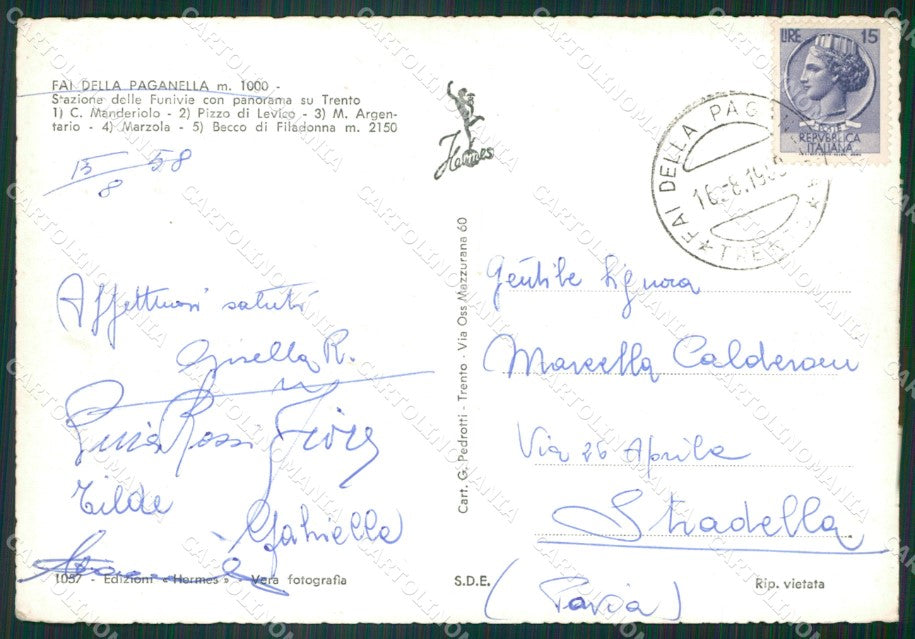 FAI DELLA PAGANELLA m. 1000 -
Stazione delle Funivie con panorama su Trento
1) C. Manderiolo - 2) Pizzo di Levico - 3) M. Argen-
tario - 4) Marzola - 5) Becco di Filadonna m. 2150
15/8 58
Affettuosi saluti
Gisella R.
Rossi
Tilde
Gabriella
1057 - Edizioni «Hermes» - Vera fotografia
Hermes
Cart. G. Pedrotti - Trento - Via Oss Mazzurana 60
S.D.E.
LIRE 15
REPVBBLICA
ITALIANA
FAI DELLA PAG
16-8.19
TRENTO
Gentile Signora
Marcella Calderoni
Via 26 Aprile
Stradella
(Pavia)
Rip. vietata
CARTOLINOMANIA